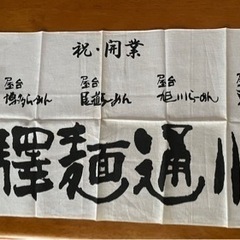 祝・開業
屋台
博多らーめん
屋台
尾道らーめん
屋台
旭川らーめん
驛麺通り